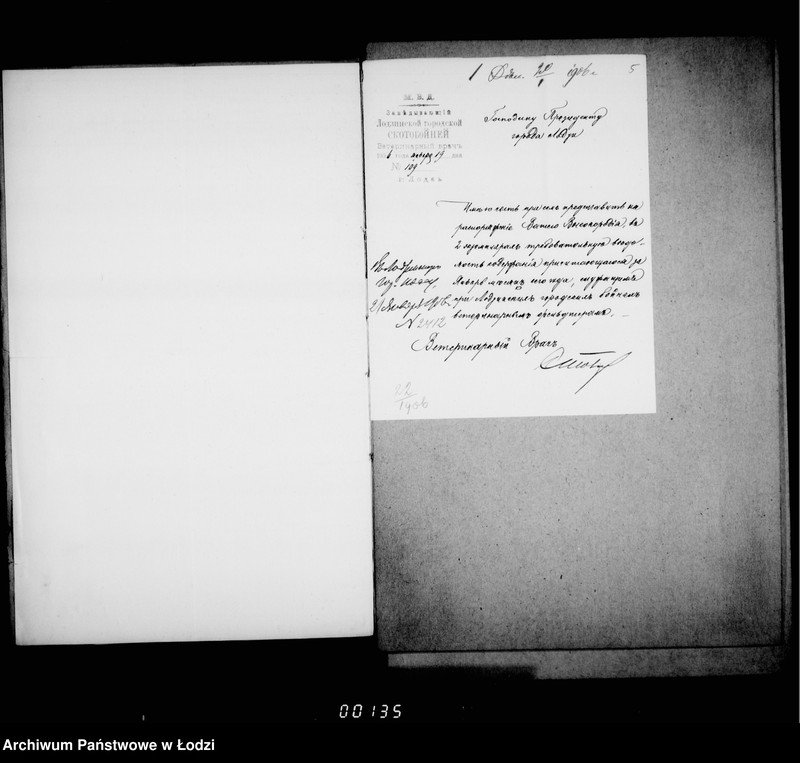 1 Отдел. 20/I 1906 г.
5
М. В. Д.
Заведывающій
Лодзинской городской
СКОТОБОЙНЕЙ
Ветеринарный врачъ
6 января 19 дня
№ 109
г. Лодзь
Господину Президенту
города Лодзи
Имѣю честь при семъ представить на
распоряженіе Вашего Высокородія, въ
2 экземплярахъ требовательную вѣдо-
мость содержанія причитающагося за
Январь мѣсяцъ сего года, служащимъ
при Лодзинскихъ городскихъ бойняхъ
ветеринарнымъ фельдшерамъ.
Ветеринарный Врачъ
21 Января 1906
N 2412
22/1906
00135
Archiwum Państwowe w Łodzi